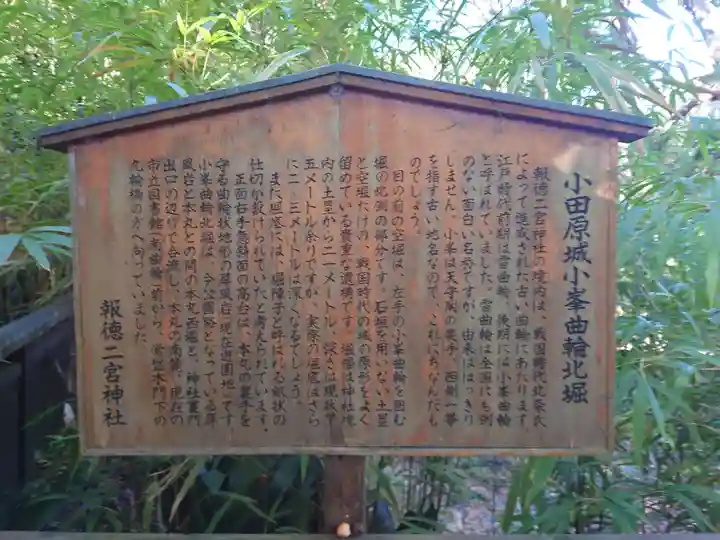 小田原城小峯曲輪北堀
報徳二宮神社の境内は、戦国時代北条氏
によって造成された古い曲輪にあたります。
江戸時代前期は雷曲輪、後期には小峯曲輪
と呼ばれていました。雷曲輪は全国にも例
のない面白い名称ですが、由来ははっきり
しません。小峯は天守閣の裏手、西側一帯
を指す古い地名なので、これにちなんだも
のでしょう。
目の前の空堀は、左手の小峯曲輪を囲む
堀の北側の部分です。石垣を用いない土塁
と空堀だけの、戦国時代の城の原形をよく
留めている貴重な遺構です。堀幅は神社境
内の土塁から二一メートル、深さは現状で
五メートル余りですが、実際の堀底はさら
に二、三メートルは深くなるでしょう。
また、堀底には、堀障子と呼ばれる畝状の
仕切が設けられていたと考えられています。
正面右手急斜面の高台は、本丸の裏手を
守る曲輪状地形の屏風岩(現在遊園地)です
小峯曲輪北堀は、今空園路となっている屏
風岩と本丸との間の本丸西堀と、神社裏門
出口の辺りで合流し、本丸の南麓、現在の
市立図書館(南曲輪)前から、常盤木門下の
九輪橋の方へ向っていました。
報徳二宮神社